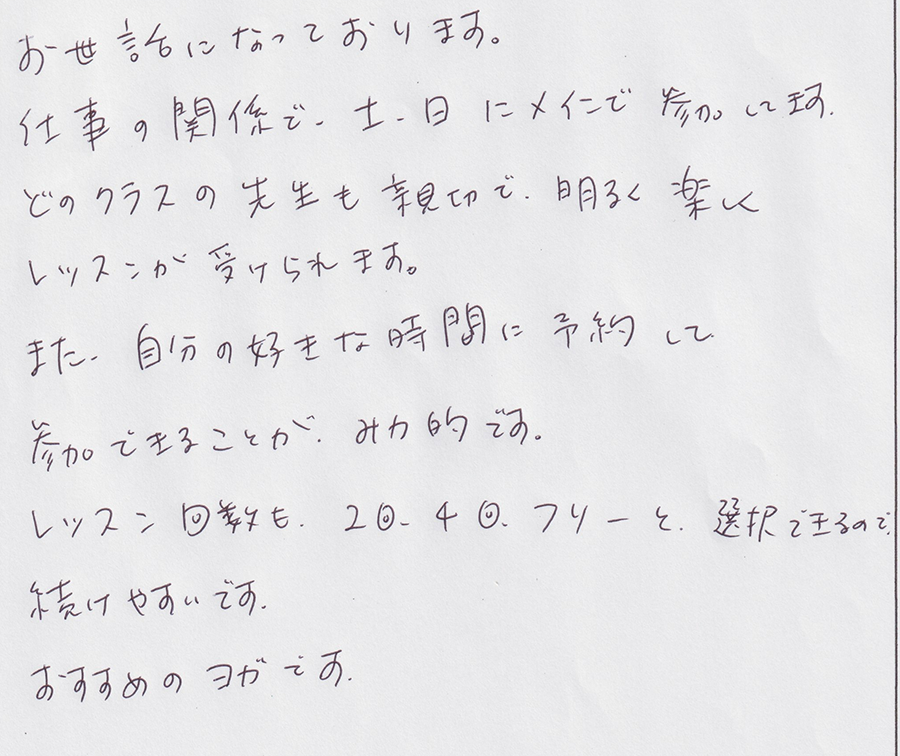 お世話になっております。
仕事の関係で、土、日にメインで参加してます。
どのクラスの先生も親切で、明るく楽しく
レッスンが受けられます。
また、自分の好きな時間に予約して
参加できることが、みカ的です。
レッスン回数も、2回、4回、フリーと、選択できるので、
続けやすいです。
おすすめのヨガです。